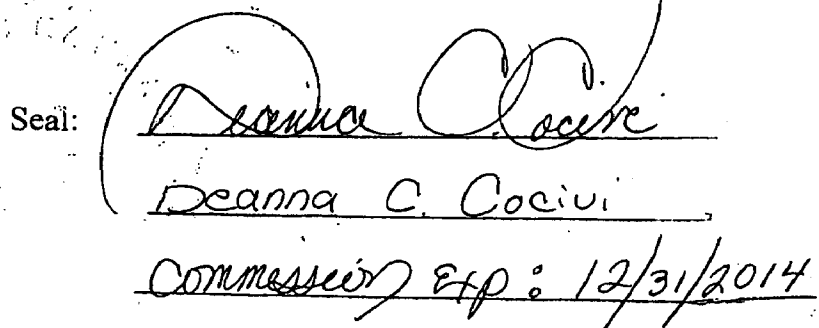 Seal: Deanna C. Cocivi
Deanna C. Cocivi
Commission Exp: 12/31/2014